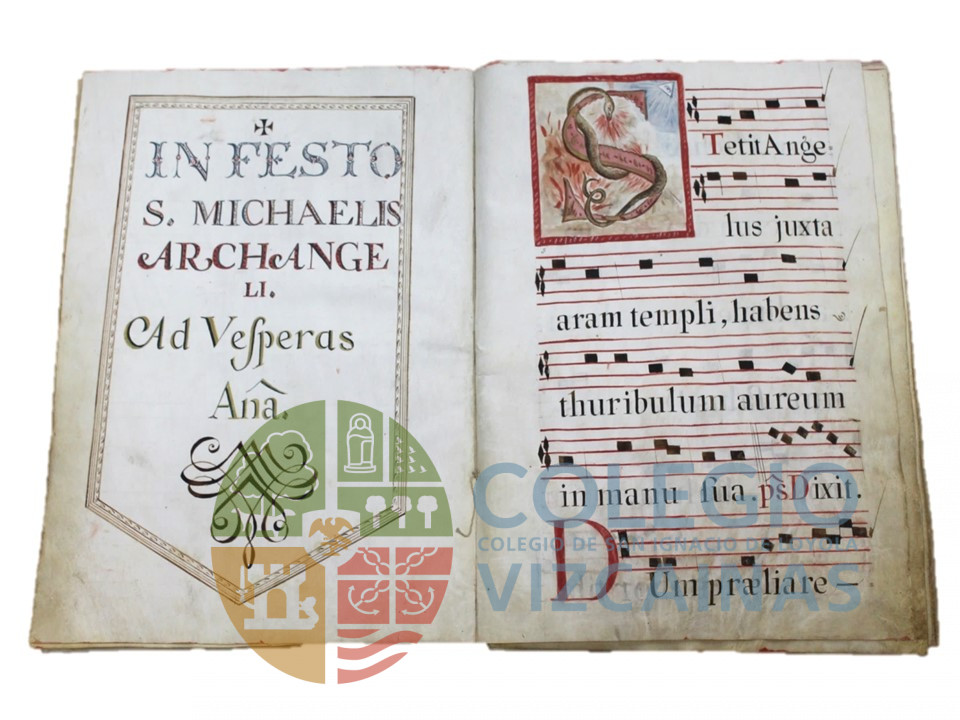 ✠
IN FESTO
S. MICHAELIS
ARCHANGE
LI.
Ad Veſperas
Añã.
StetitAnge.
lus juxta
aram templi, habens
thuribulum aureum
in manu ſua. p̃sDixit.
DUmpræliare-
COLEGIO
COLEGIO DE SAN IGNACIO DE LOYOLA
VIZCAÍNAS